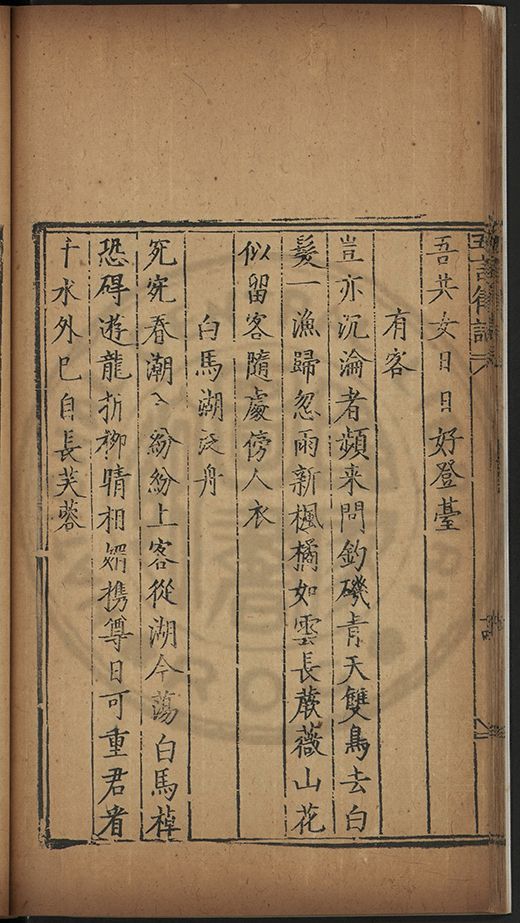 五言律詩
吾共女日日好登臺
有客
豈亦沉淪者蘋来問釣磯青天雙鳥去白
髮一漁歸忽雨新楓橘如雲長蕨薇山花
似留客隨處傍人衣
白馬湖泛舟
宛宛春潮紛紛上客從湖今蕩白馬棹
恐碍遊龍折柳晴相媚携尊日可重君看
千水外巳自長芙蓉